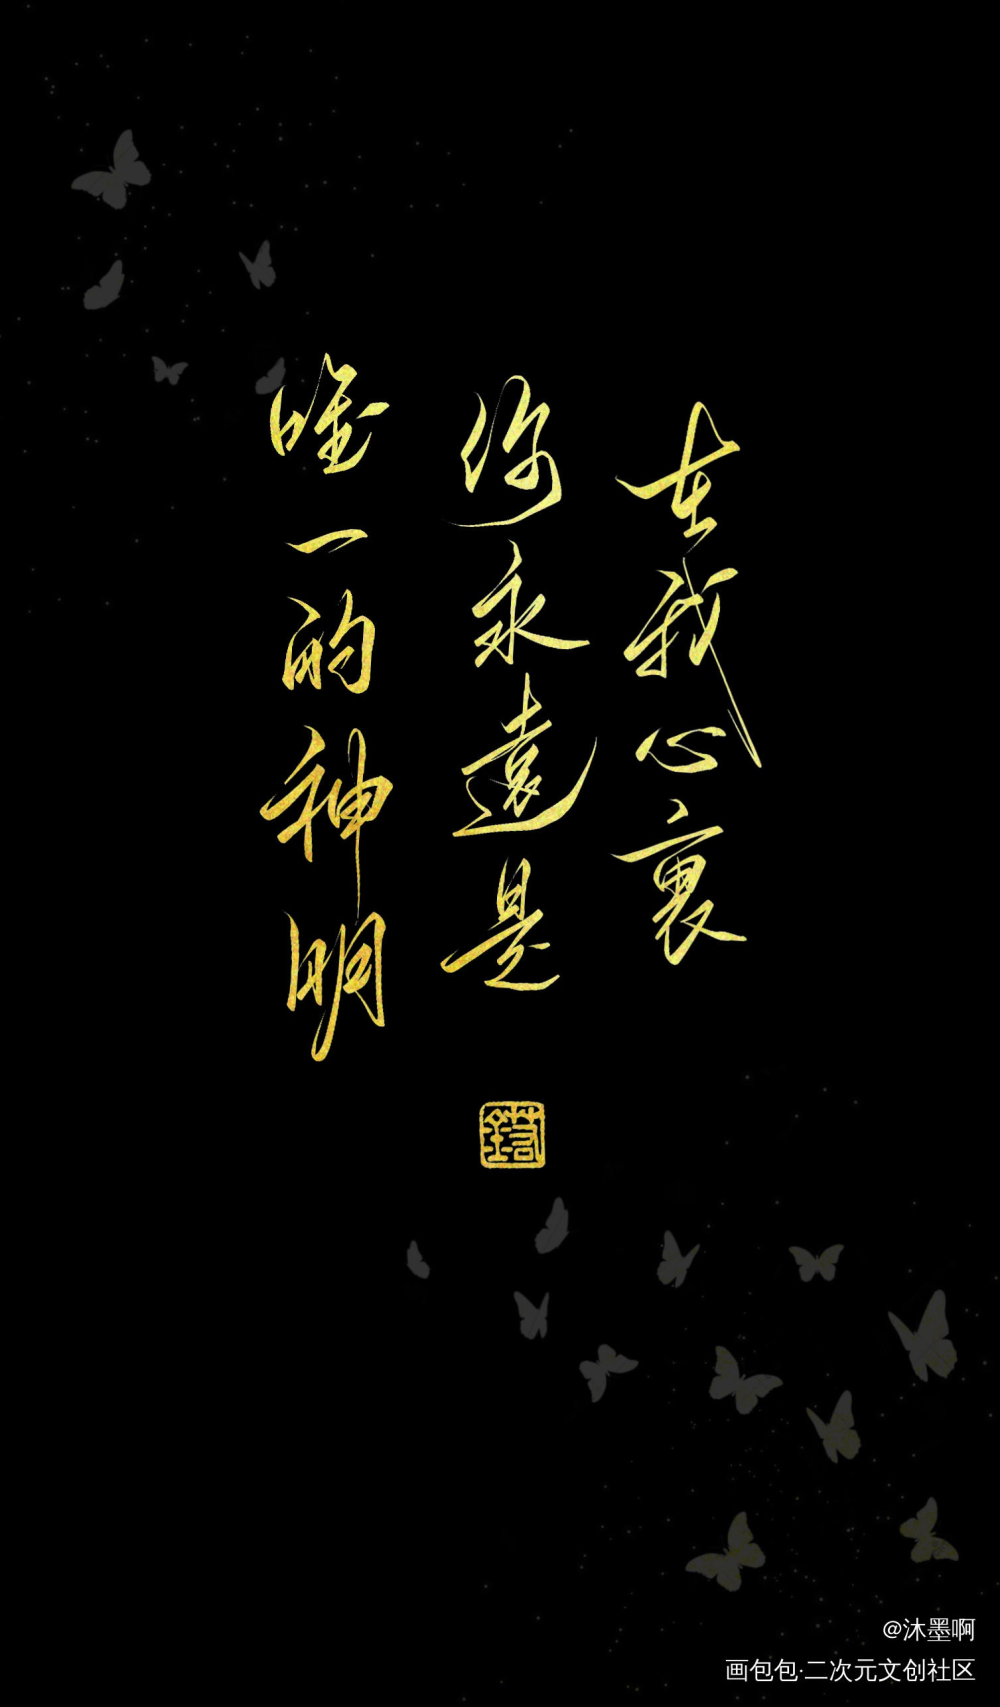 在我心裏
你永遠是
唯一的神明
@沐墨啊
画包包·二次元文创社区